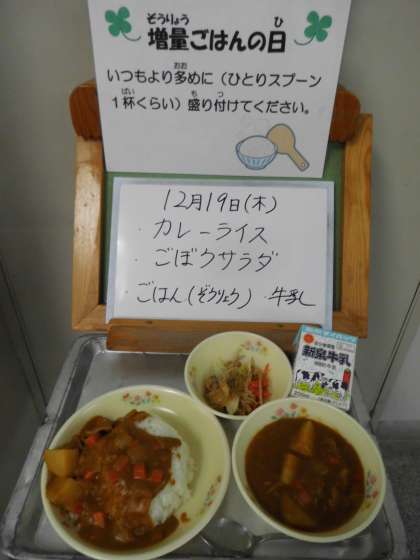 ぞうりょう ひ
増量ごはんの日
おお
いつもより多めに（ひとりスプーン
ばい も つ
１杯くらい）盛り付けてください。
12月19日(木)
・カレーライス
・ごぼうサラダ
・ごはん(ぞうりょう) ・牛乳
牛乳